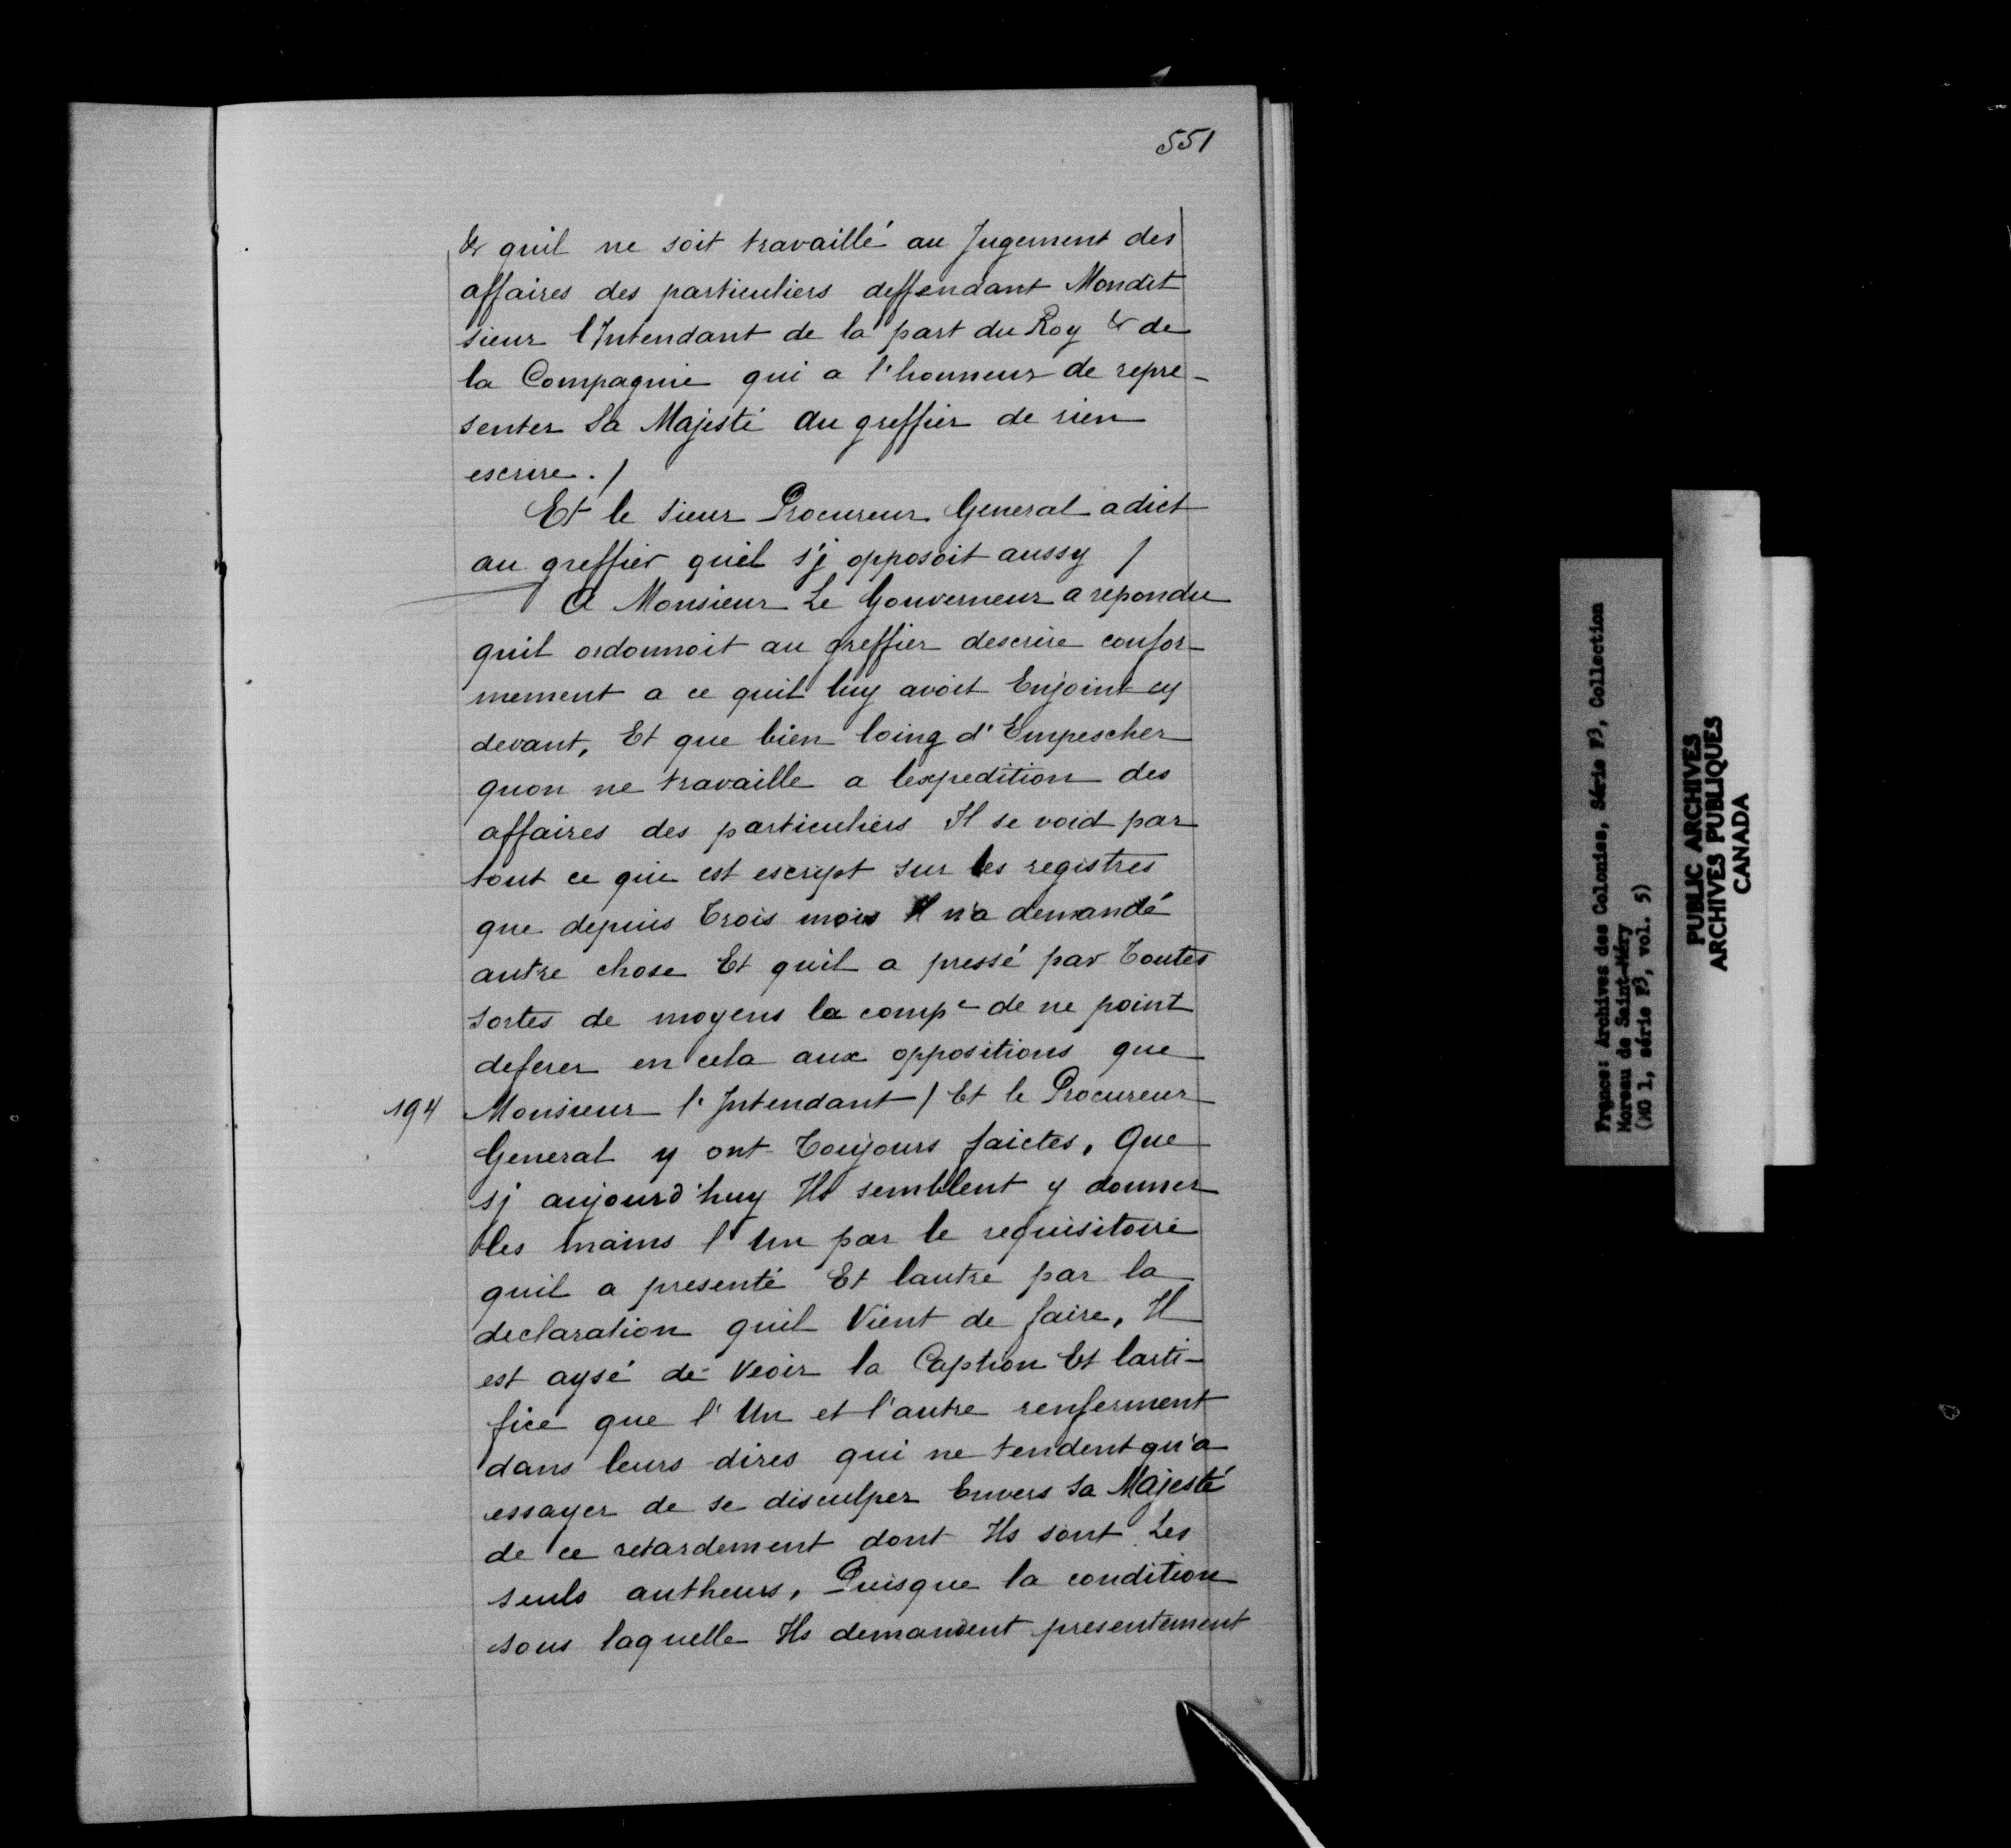 551
& quil ne soit travaillé au Jugement des
affaires des particuliers deffendant Mondit
sieur l'Intendant de la part du Roy & de
la Compagnie qui a l'honneur de repre-
senter Sa Majesté au greffier de rien
escrire. /
Et le sieur Procureur General a dict
au greffier quil s'j opposoit aussy /
A Monsieur Le Gouverneur a repondu
quil ordonnoit au greffier descrire confor-
mement a ce quil luy avoit Enjoint cy
devant, Et que bien loing d'Empescher
quon ne travaille a lexpedition des
affaires des particuliers Il se void par
tout ce qui est escript sur les registres
que depuis trois mois Il n'a demandé
autre chose Et quil a pressé par toutes
sortes de moyens la compe de ne point
deferer en cela aux oppositions que
194 Monsieur l'Intendant / Et le Procureur
General y ont toujours faictes, Que
sj aujourd'huy Ils semblent y donner
les mains l'Un par le requisitoire
quil a presenté Et lautre par la
declaration quil Vient de faire, Il
est aysé de veoir la Caption Et larti-
fice que l'Un et l'autre renferment
dans leurs dires qui ne tendent qu'a
essayer de se disculper Envers sa Majesté
de ce retardement dont Ils sont Les
seuls autheurs, Puisque la condition
sous laquelle Ils demandent presentement
France: Archives des Colonies, Série F3, Collection
Moreau de Saint-Méry
(MG 1, série F3, vol. 5)
PUBLIC ARCHIVES
ARCHIVES PUBLIQUES
CANADA